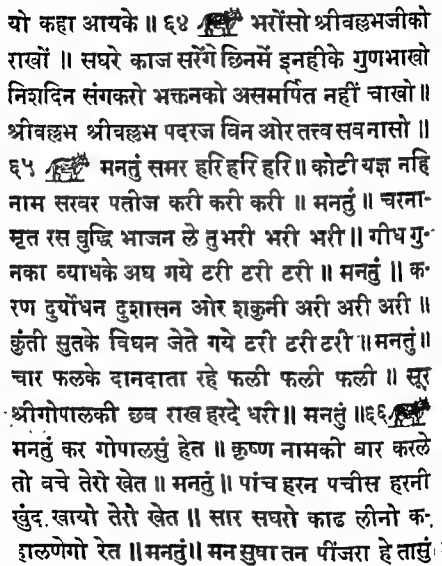 यो कहा आयके ॥ ६४ भरोंसो श्रीवल्लभजीको
राखों ॥ सघरे काज सरेंगे छिनमें इनहीके गुणभाखो
निशदिन संगकरो भक्तनको असमर्पित नहीं चाखो॥
श्रीवल्लभ श्रीवल्लभ पदरज विन ओर तत्त्व सब नासो ॥
६५ मनतुं समर हरि हरि हरि॥ कोटी यज्ञ नहि
नाम सरवर पतीज करी करी करी ॥ मनतुं ॥ चरना-
मृत रस बुद्धि भाजन ले तु भरी भरी भरी॥ गीध गु-
नका व्याधके अघ गये टरी टरी टरी ॥ मनतुं ॥ क-
रण दुर्योधन दुशासन ओर शकुनी अरी अरी अरी ॥
कुंती सुतके विघन जेते गये टरी टरी टरी ॥मनतुं॥
चार फलके दानदाता रहे फली फली फली ॥ सूर
श्रीगोपालकी छब राख हरदे धरी॥ मनतुं ॥६६
मनतुं कर गोपालसुं हेत ॥ कृष्ण नामकी वार करले
तो बचे तेरो खेत ॥ मनतुं ॥ पांच हरन पचीस हरनी
खुंद खायो तेरो खेत ॥ सार सघरो काढ लीनो क-
हालणेगो रेत ॥मनतुं॥ मन सुघा तन पींजरा हे तासुं